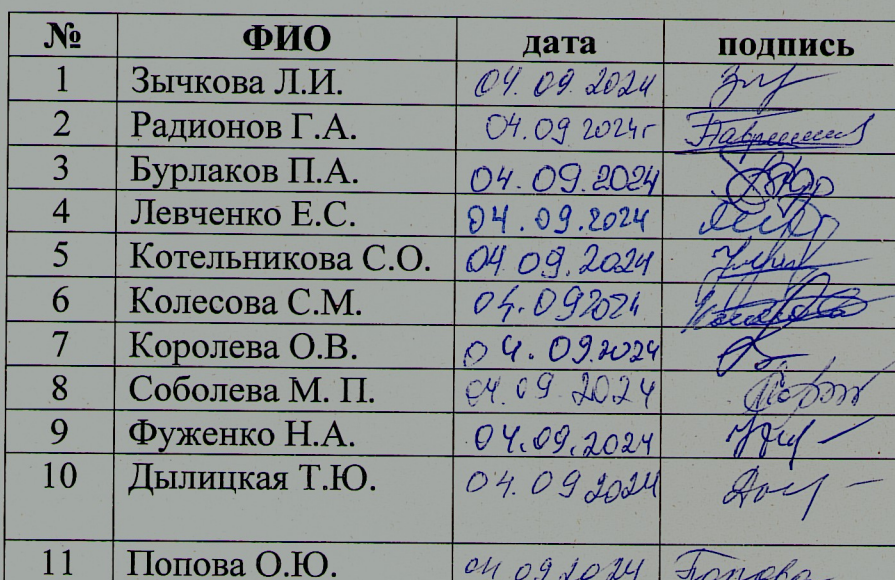 № ФИО дата подпись
1 Зычкова Л.И. 04.09.2024
2 Радионов Г.А. 04.09.2024г
3 Бурлаков П.А. 04.09.2024
4 Левченко Е.С. 04.09.2024
5 Котельникова С.О. 04.09.2024
6 Колесова С.М. 04.092024
7 Королева О.В. 04.09.2024
8 Соболева М. П. 04.09.2024
9 Фуженко Н.А. 04.09.2024
10 Дылицкая Т.Ю. 04.09 2024
11 Попова О.Ю. 04 09 2024 Попова